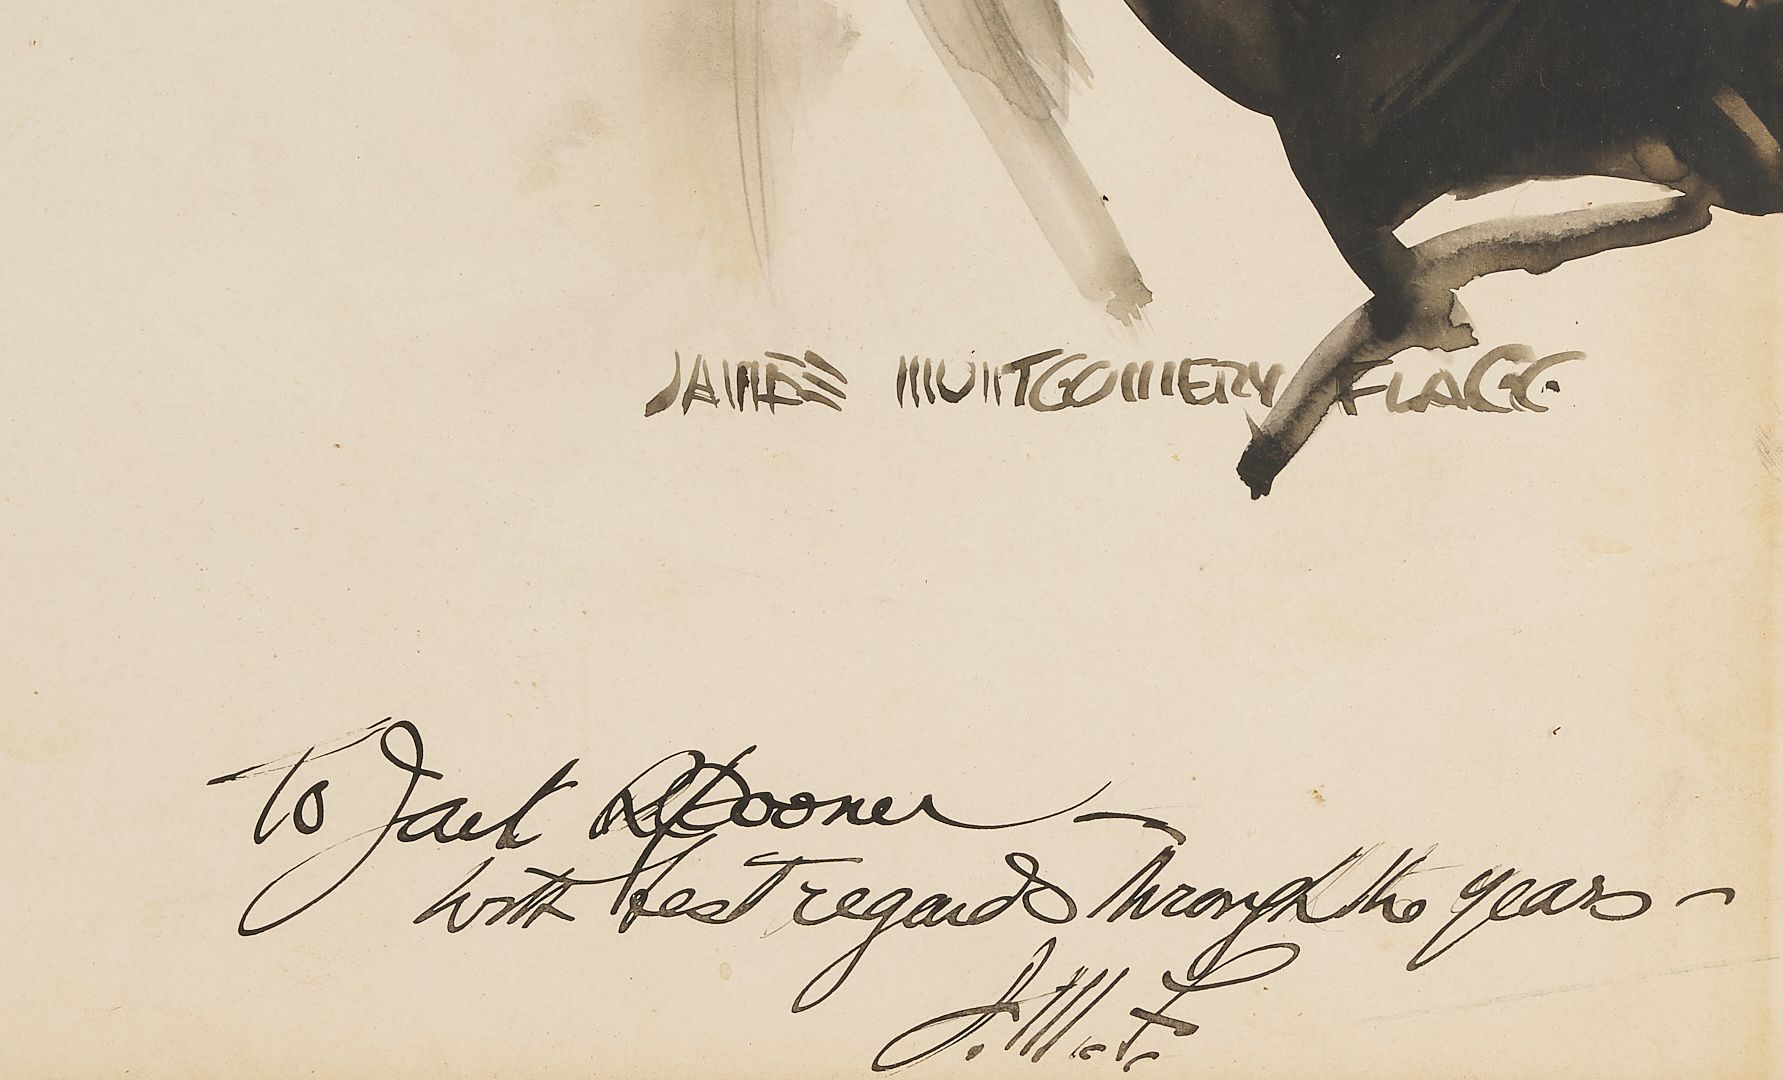 JAMES MONTGOMERY FLAGG
To Jack Spooner —
with best regards through the years —
J.M.F.